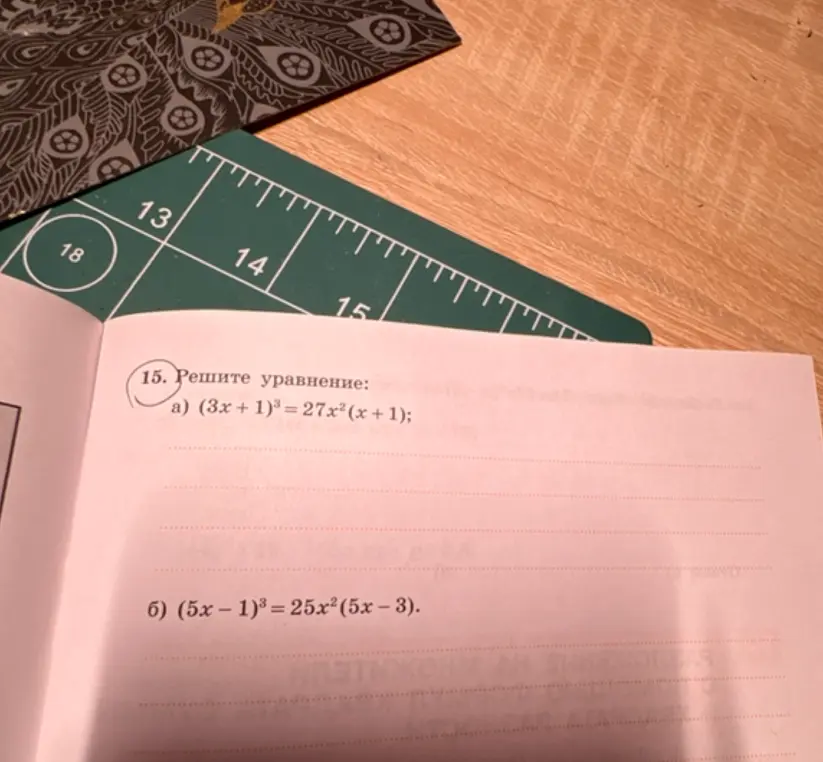 13
18
14
15
15. Решите уравнение:
а) (3x + 1)³ = 27x²(x + 1);
б) (5x – 1)³ = 25x²(5x – 3).